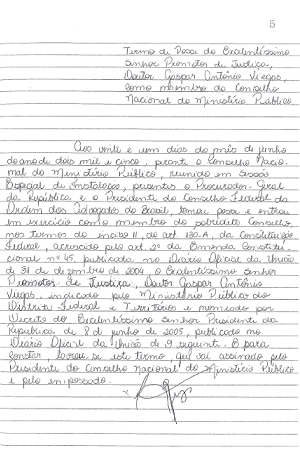 5
Termo de Posse do Excelentíssimo
Senhor Promotor de Justiça,
Doutor Gaspar Antônio Viegas,
como membro do Conselho
Nacional do Ministério Público
Aos vinte e um dias do mês de junho
do ano de dois mil e cinco, perante o Conselho Nacio-
nal do Ministério Público, reunido em sessão
Especial de Instalação, presentes o Procurador-Geral
da República e o Presidente do Conselho Federal da
Ordem dos Advogados do Brasil, tomou posse e entrou
em exercício como membro do Conselho,
nos termos do inciso II, do art. 130-A, da Constituição
Federal, acrescido pelo art. 2º da Emenda Constitu-
cional nº 45, publicada no Diário Oficial da União
de 31 de dezembro de 2004, o Excelentíssimo Senhor
Promotor de Justiça, Doutor Gaspar Antônio
Viegas, indicado pelo Ministério Público do
Distrito Federal e Territórios e nomeado por
Decreto do Excelentíssimo Senhor Presidente da
República de 8 de junho de 2005, publicado no
Diário Oficial da União de 9 seguinte. E para
constar, lavrou-se este termo, que vai assinado pelo
Presidente do Conselho Nacional do Ministério Público
e pelo empossado.